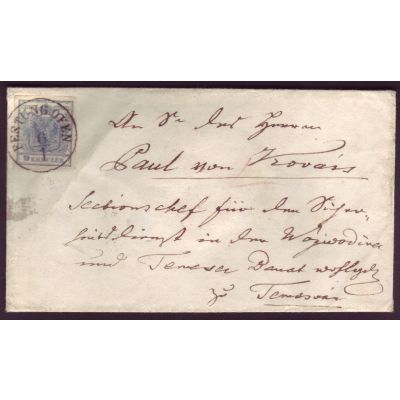 FESTUNG OFEN
9 KREUZER
An Sr des Herrn
Paul von
Sectionschef für den Sicher-
heitsdienst in der Wojwodina
und Temeser Banat wohlgeb
zu Temesvár